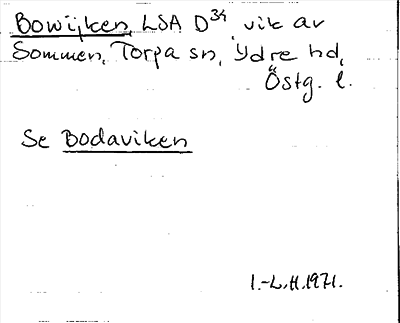 Bowijken, LSA D34, vik av
Sommen, Torpa sn, Ydre hd,
Östg. l.
Se Bodaviken
I.-L.H.1971.